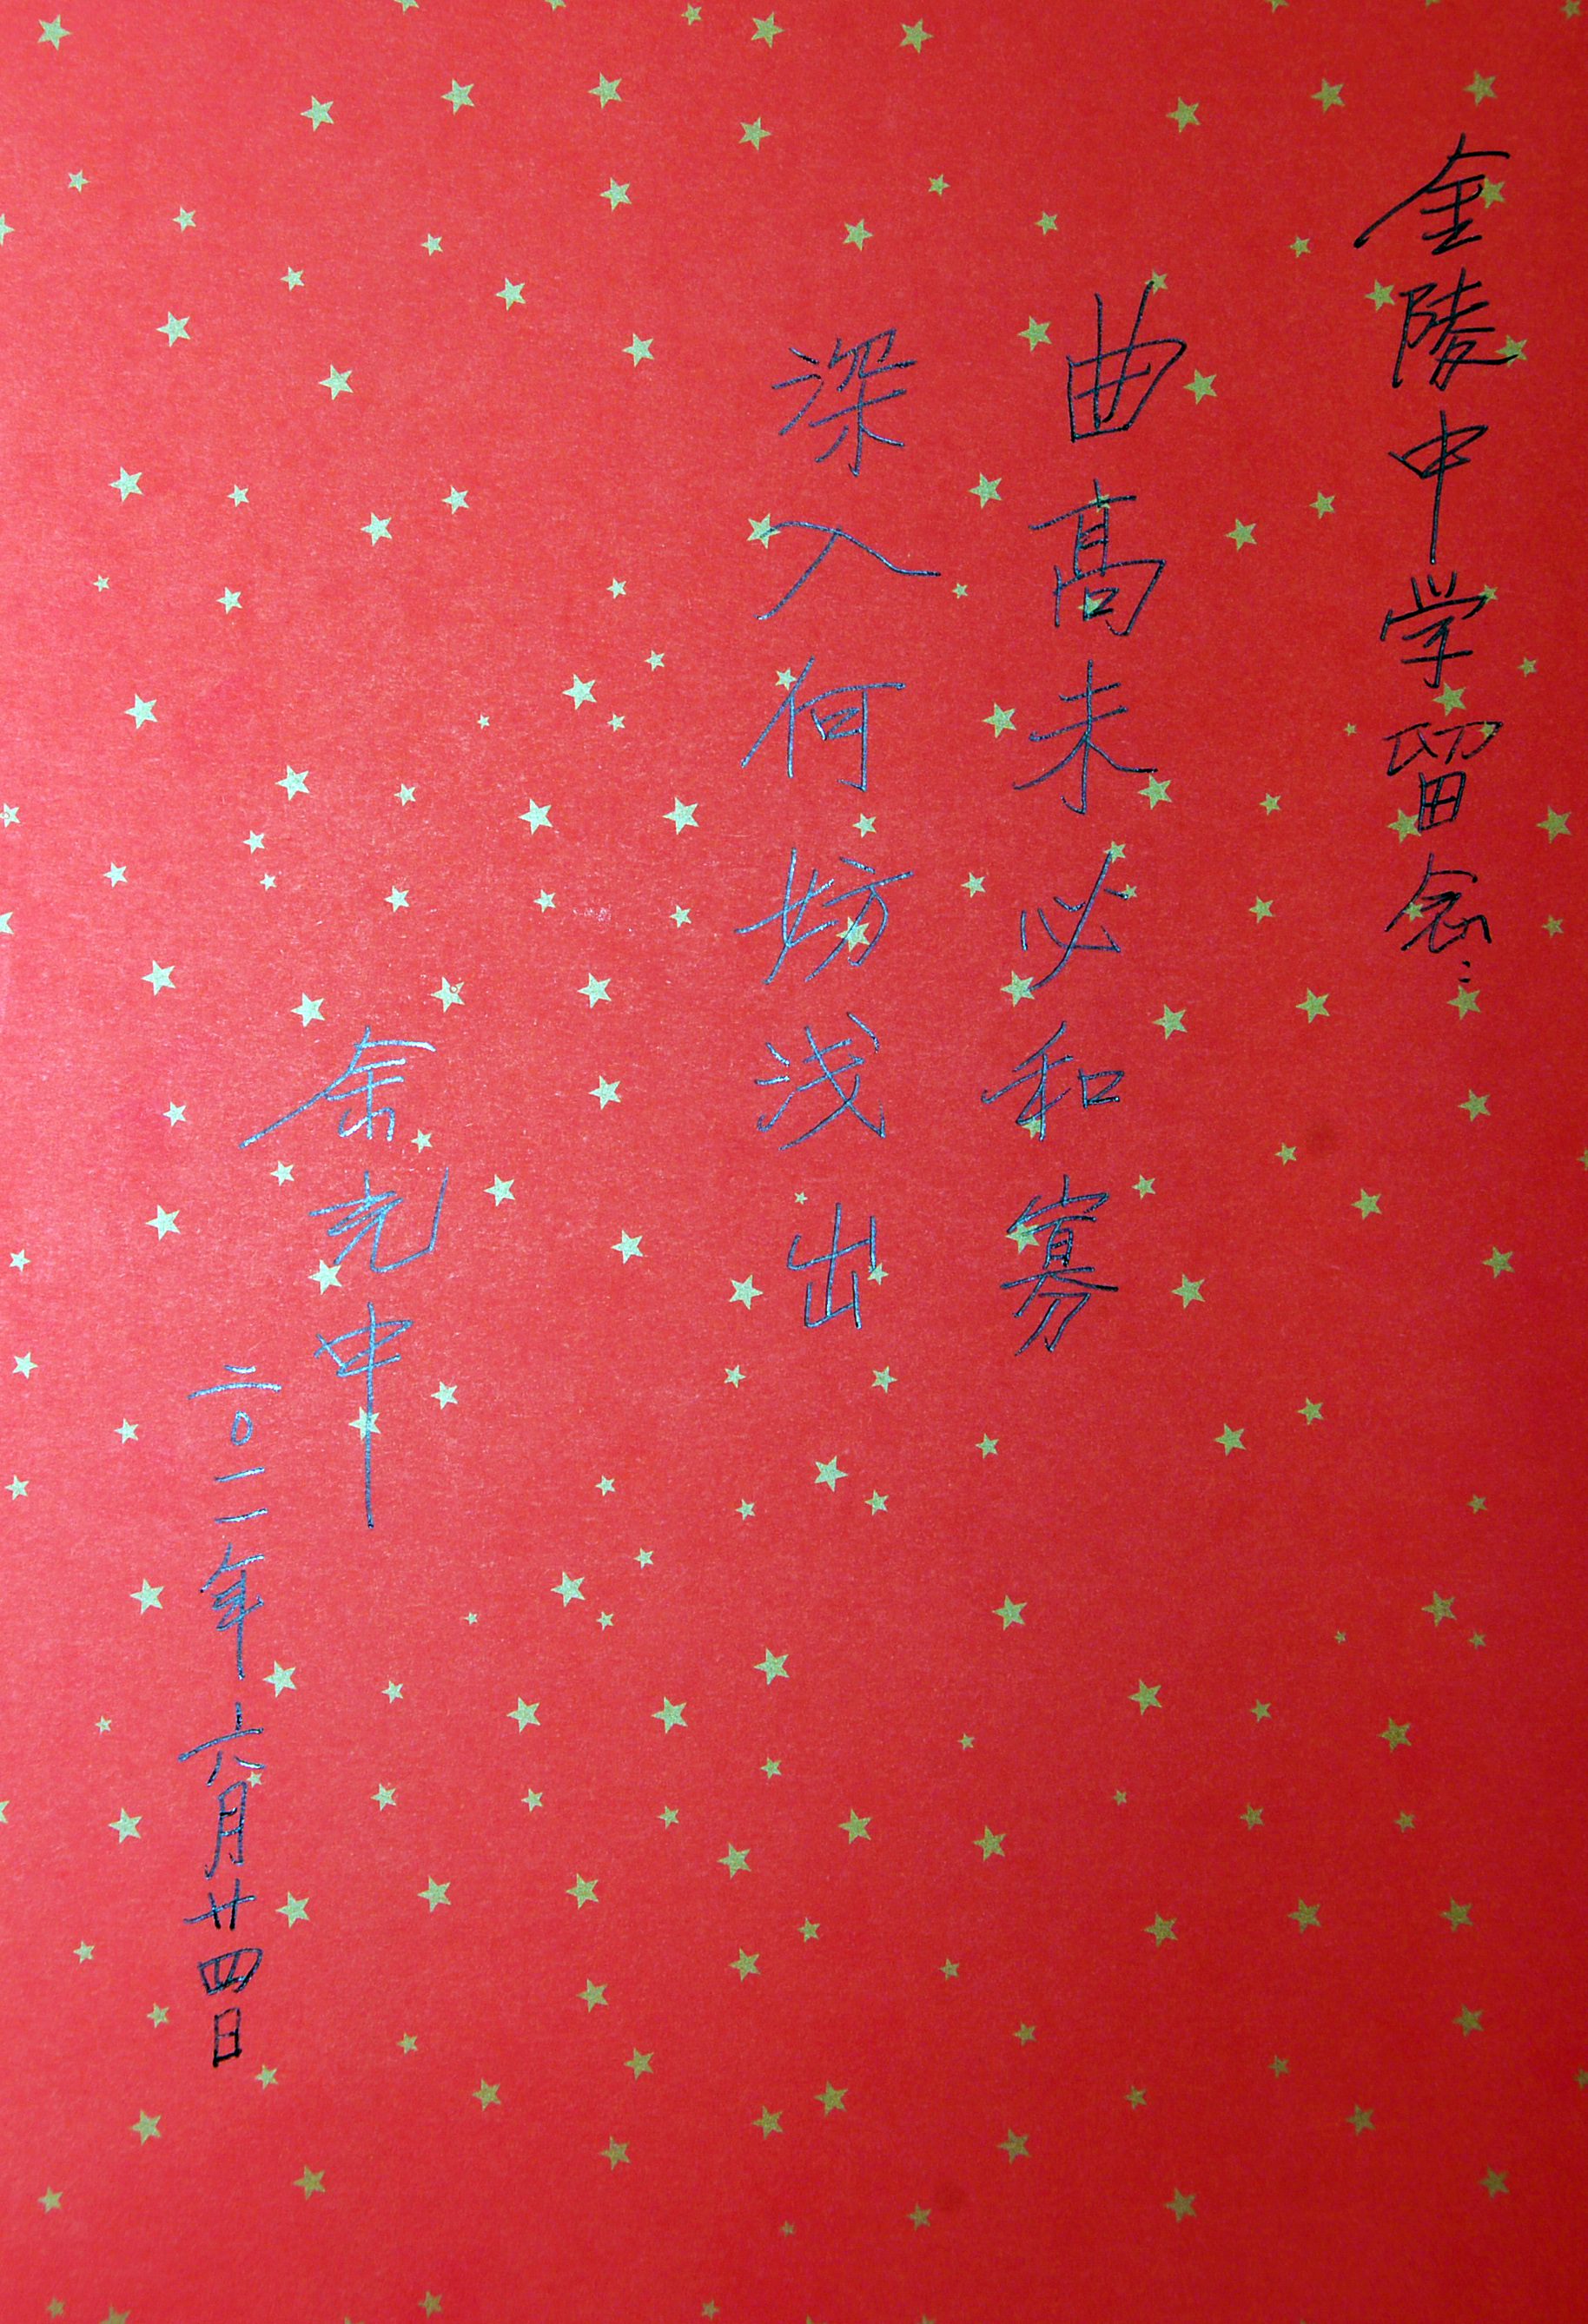 金陵中学留念：
曲高未必和寡
深入何妨浅出
余光中
二〇一一年六月廿四日